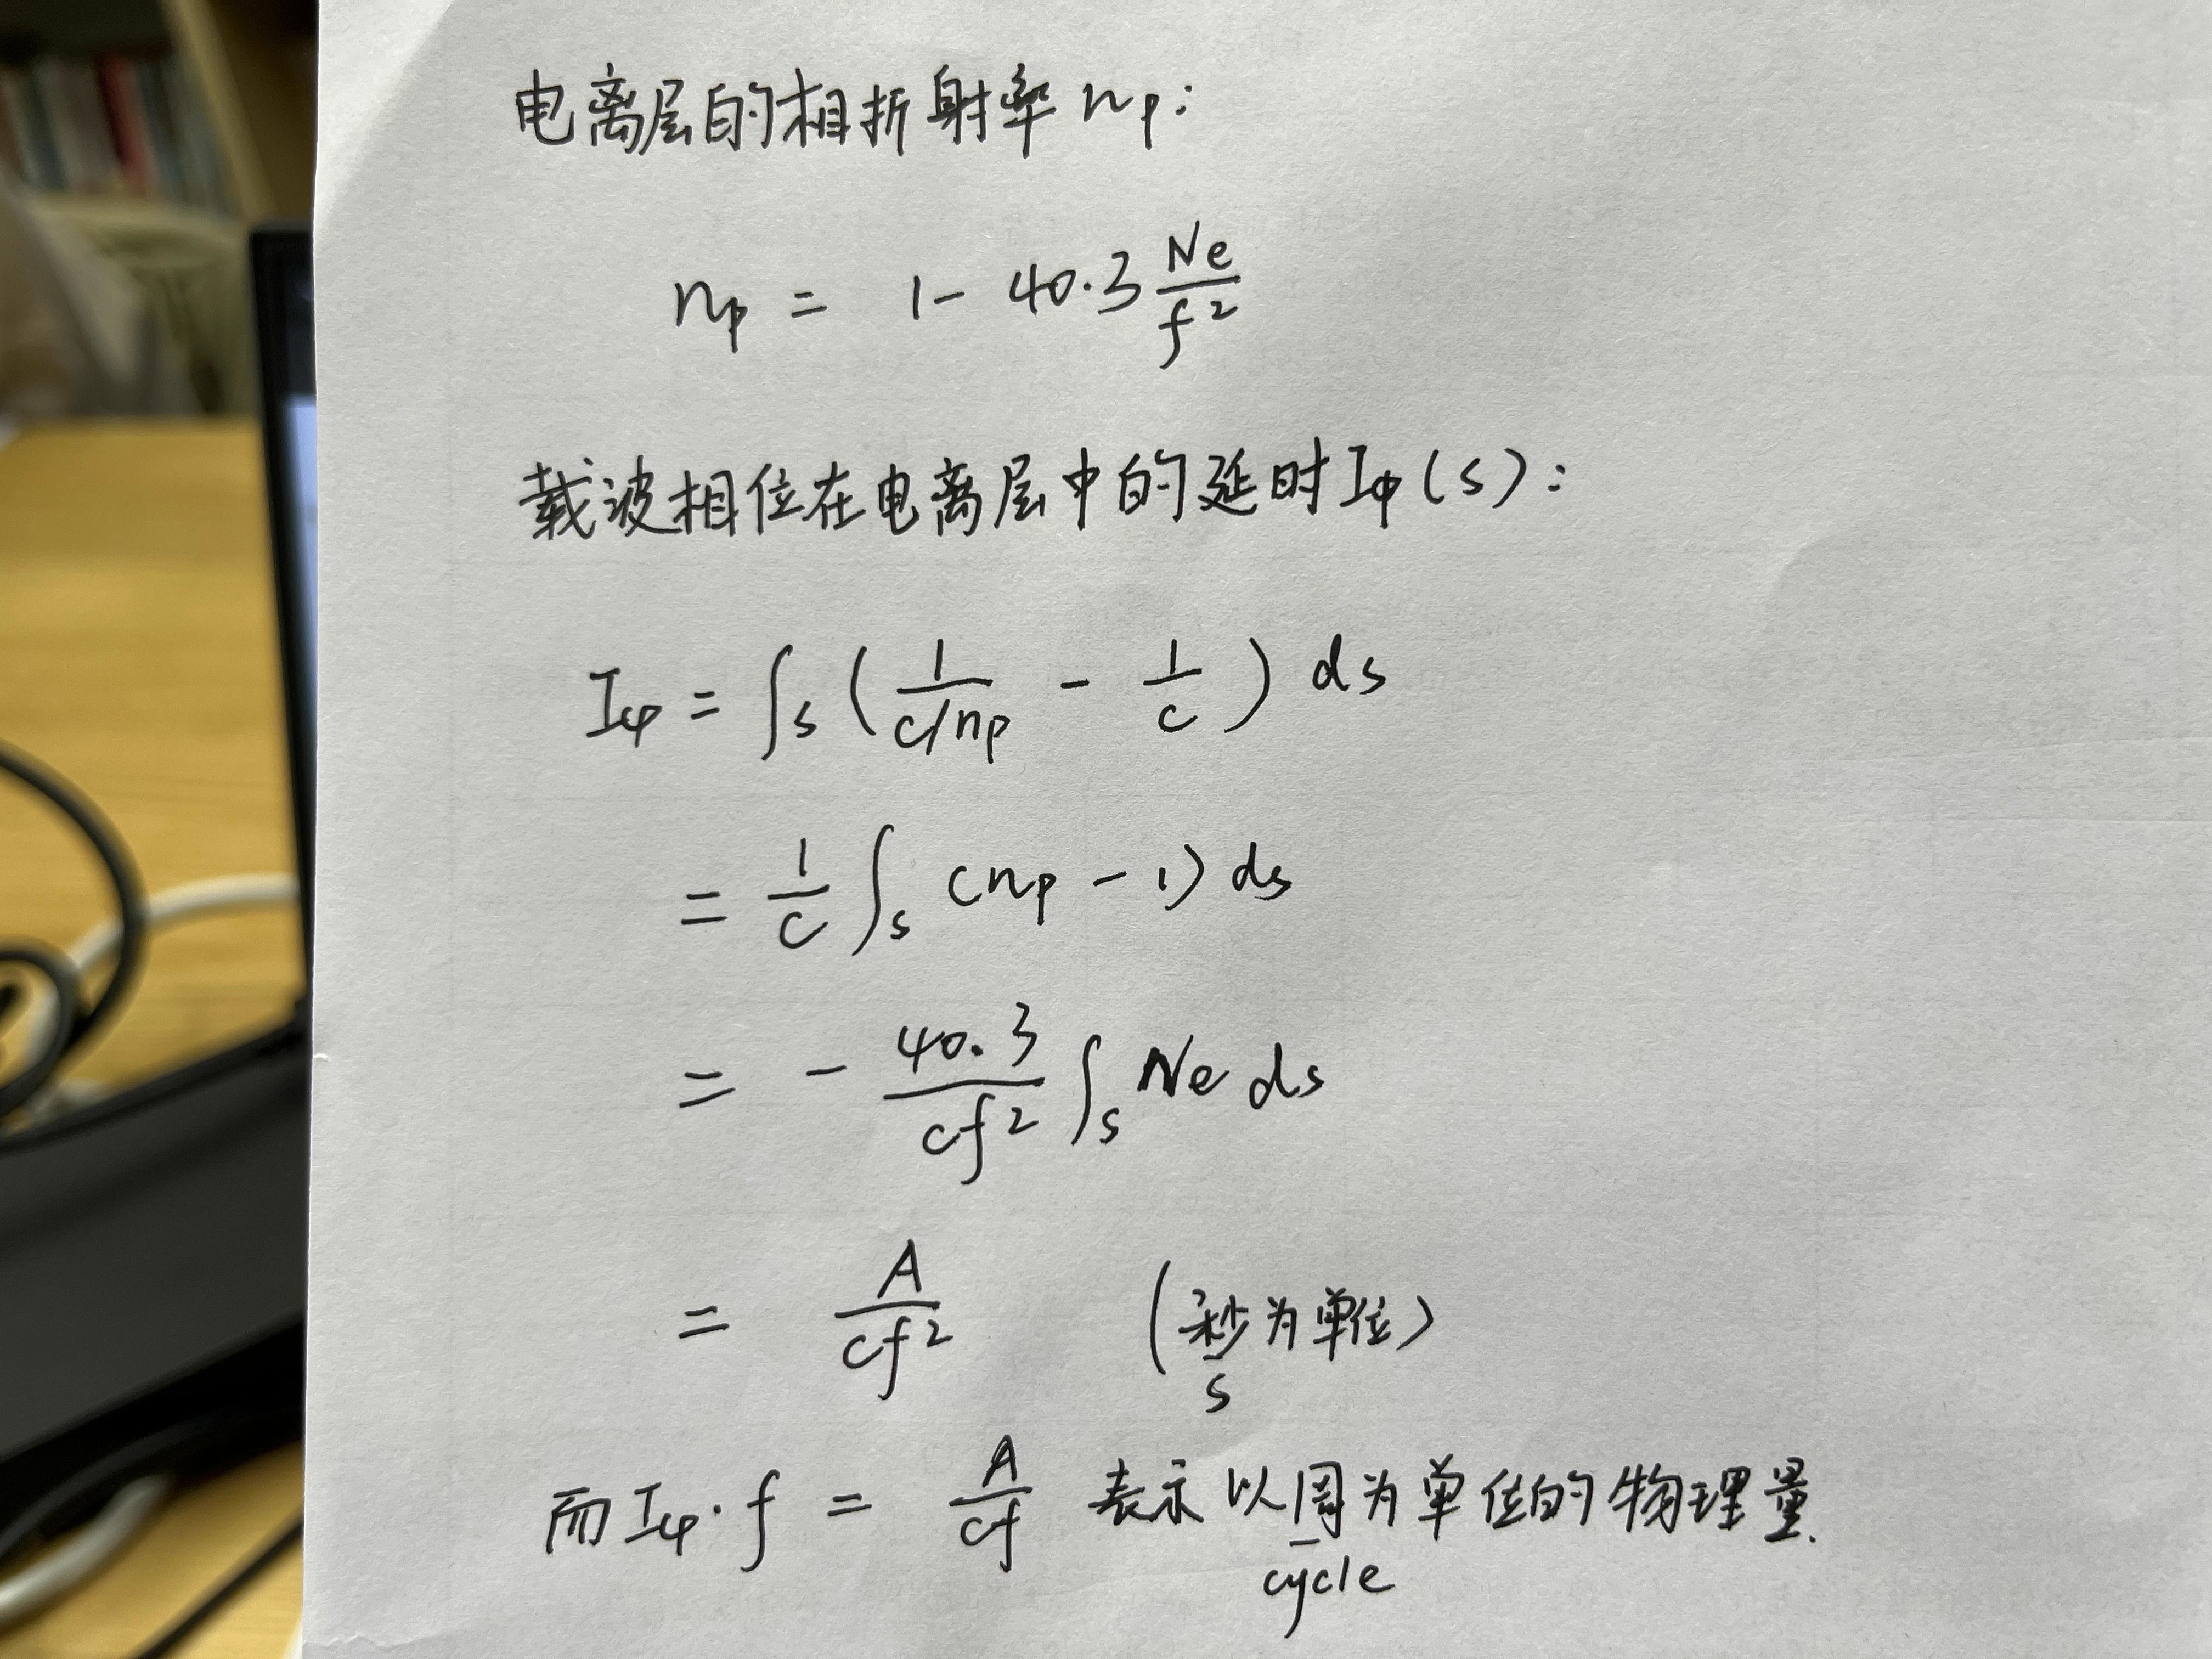 电离层的相折射率 np:
np = 1 - 40.3 Ne/f²
载波相位在电离层中的延时 Iφ (s):
Iφ = ∫s (1/(c/np) - 1/c) ds
= 1/c ∫s (np - 1) ds
= - 40.3/cf² ∫s Ne ds
= A/cf² (秒为单位)
s
而 Iφ · f = A/cf 表示以周为单位的物理量.
cycle